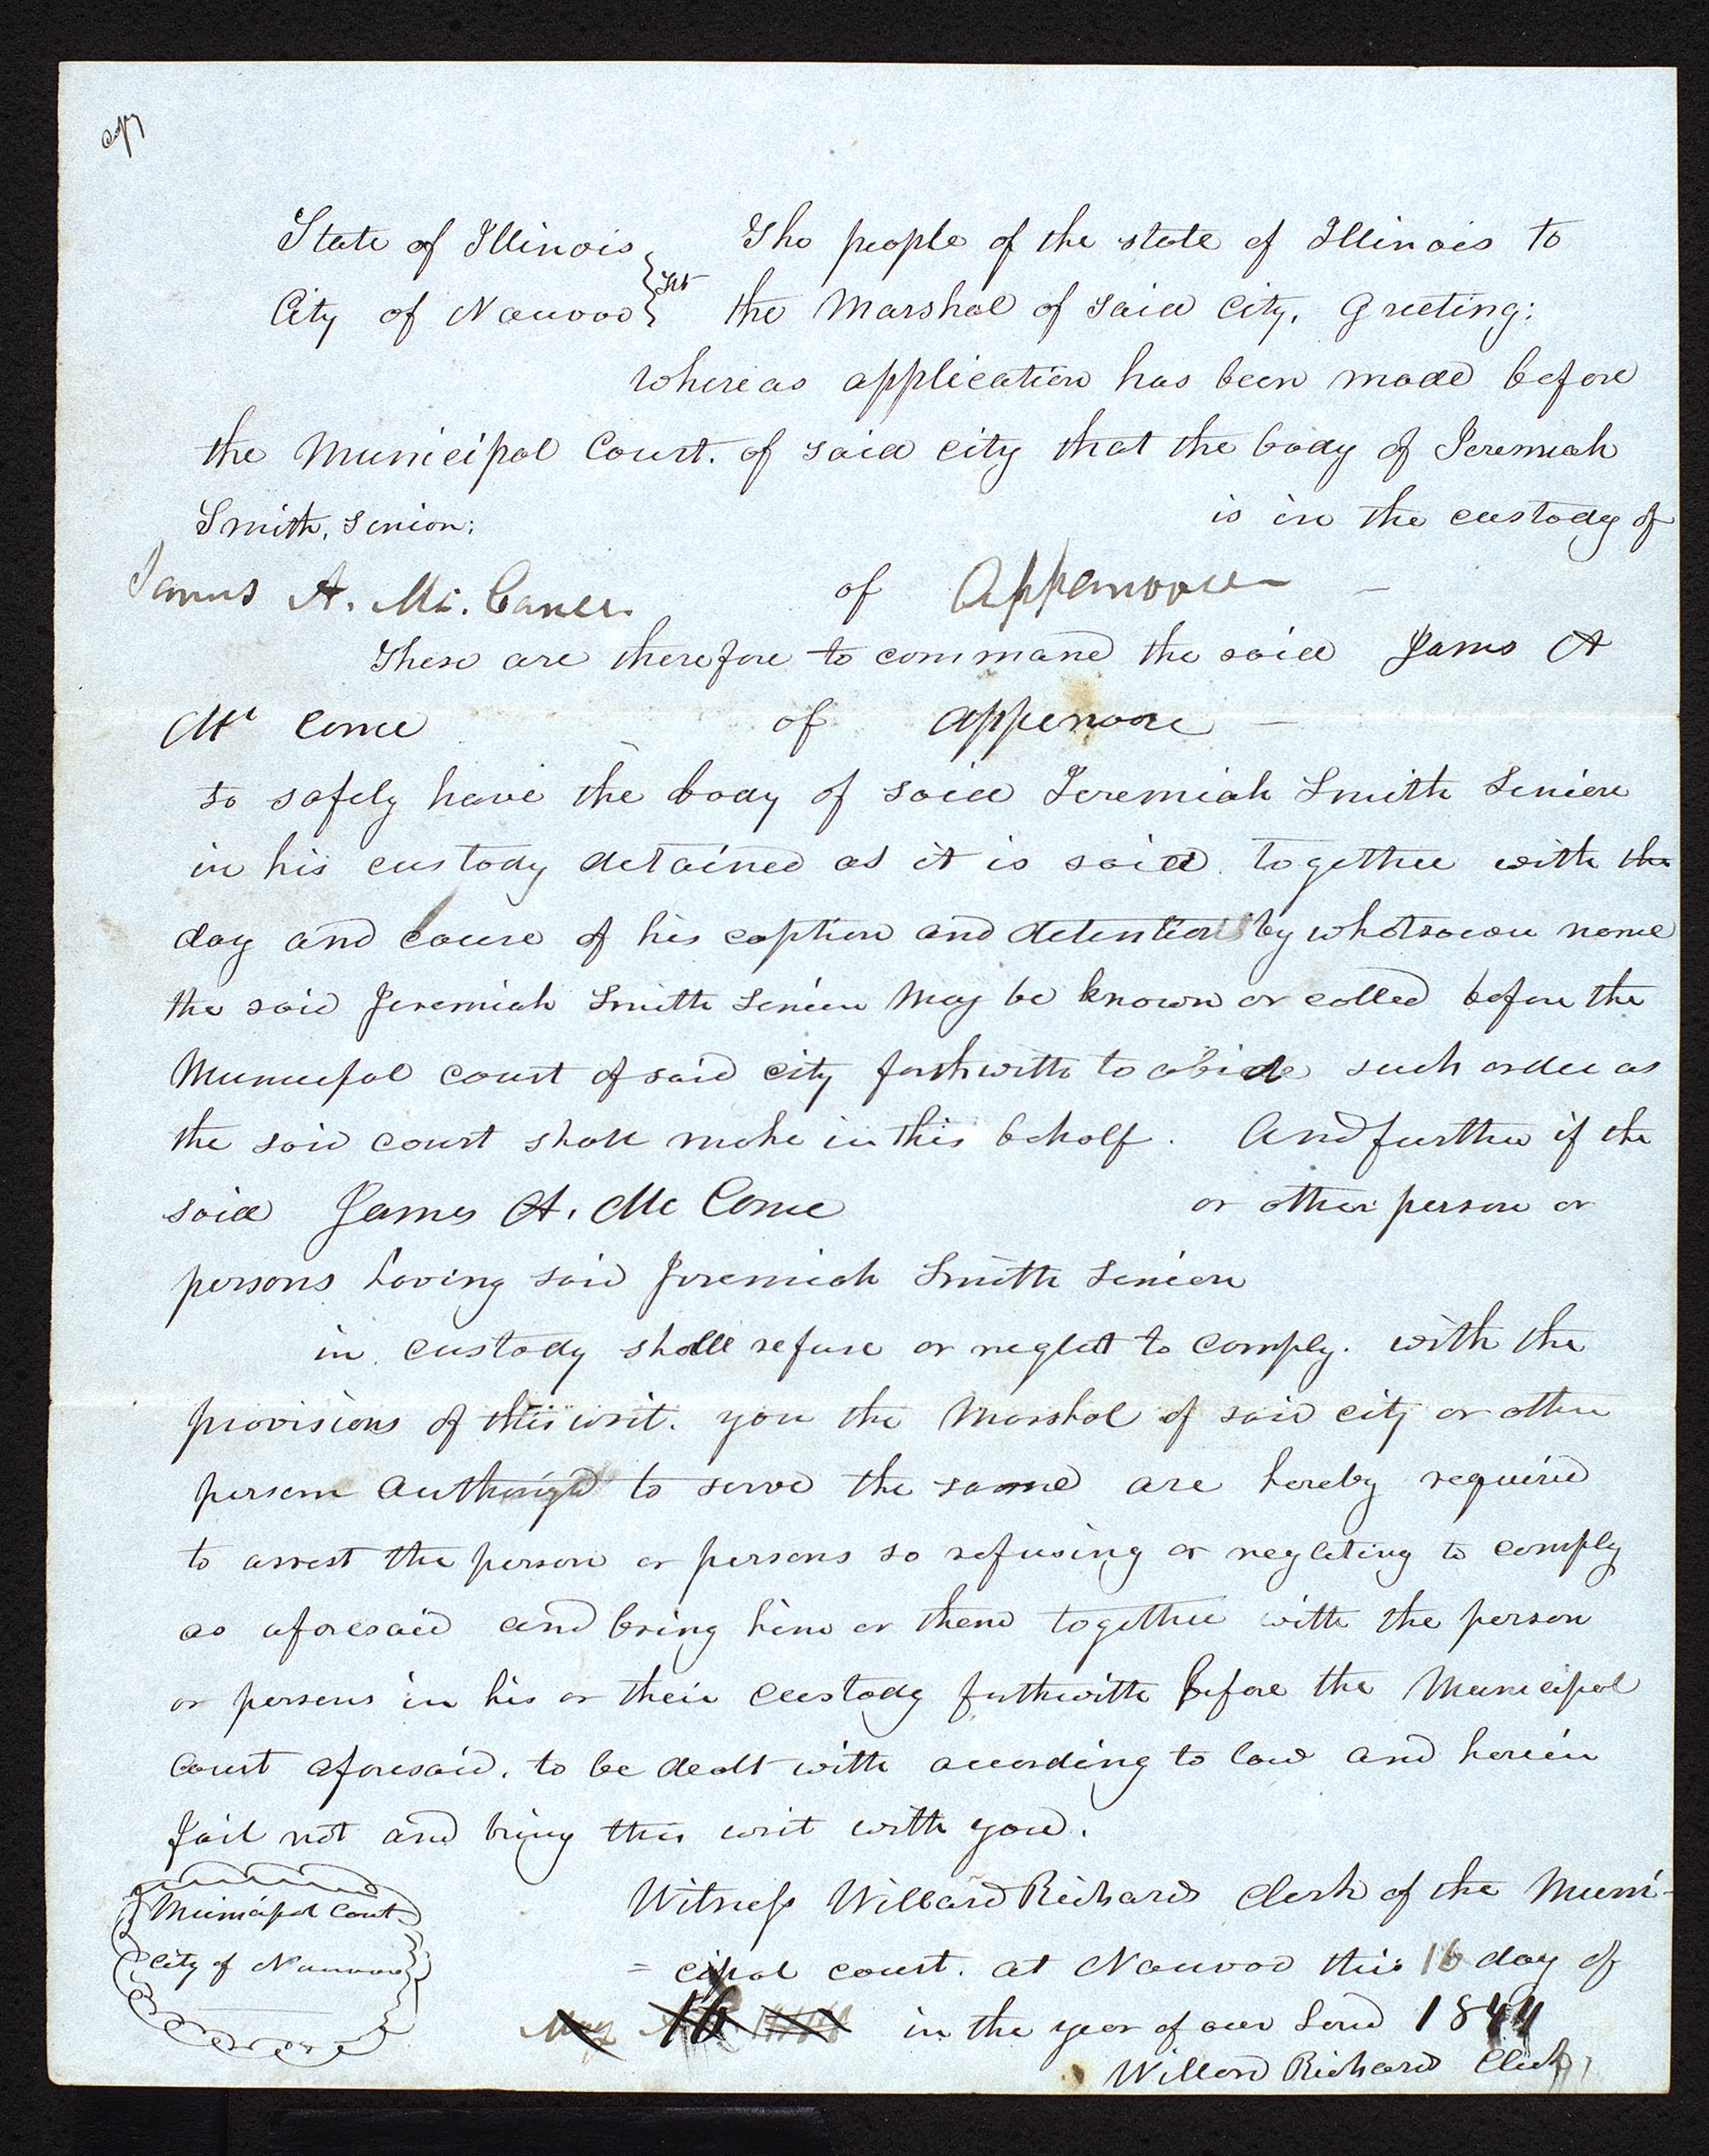 copy
State of Illinois } The people of the state of Illinois to
City of Nauvoo } the Marshal of said City, Greeting:
whereas application has been made before
the Municipal Court. of said city that the body of Jeremiah
Smith, senior; is in the custody of
James A. Mc. of Appanoose —
These are therefore to command the said James A
Mc of appanoose —
to safely have the body of said Jeremiah Smith Senior
in his custody detained as it is said together with the
day and cause of his caption and detention by whatsoever name
the said Jeremiah Smith Senior may be known or called before the
Municipal court of said city forthwith to abide such order as
the said court shall make in this behalf. And further if the
said James A. Mc or other person or
persons having said Jeremiah Smith Senior
in custody shall refuse or neglect to comply. with the
provisions of this writ. you the Marshal of said city or other
person authorized to serve the same are hereby required
to arrest the person or persons so refusing or neglecting to comply
as aforesaid and bring him or them together with the person
or persons in his or their custody forthwith before the Municipal
Court aforesaid, to be dealt with according to law and herein
fail not and bring this writ with you.
Municipal Court
City of Nauvoo
Witness Willard Richards Clerk of the Muni-
=cipal court. at Nauvoo this 16 day of
May 16 in the year of our Lord 1844
Willard Richards Clerk